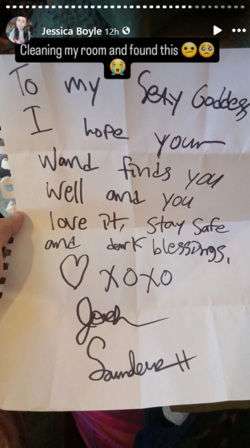 Jessica Boyle 12h
Cleaning my room and found this 🫤🥺
😭
To my Sexy Goddess
I hope your
Wand finds you
well and you
love it, stay safe
and dark blessings,
♡ XOXO
Josh
Saunders H